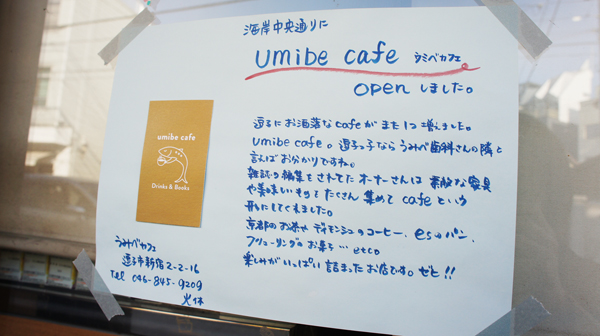 海岸中央通りに
umibe cafe ウミベカフェ
openしました。
umibe cafe
Drinks & Books
逗子にお洒落なcafeがまた1つ増えました。
umibe cafe。逗子っ子ならうみべ歯科さんの隣と
言えばお分かりですね。
雑誌の編集をされてたオーナーさんは素敵な家具
や美味しいものをたくさん集めてcafeという
形にしてくれました。
京都のお茶やディモンシュのコーヒー、esのパン、
フリューリングのお菓子…etc。
楽しみがいっぱい詰まったお店です。ぜひ!!
うみべカフェ
逗子市新宿2-2-16
Tel 046-845-9209
火休